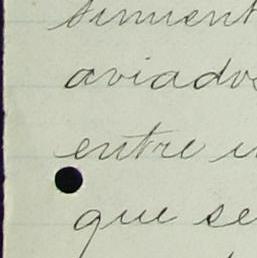 simient
aviados
entre
que se